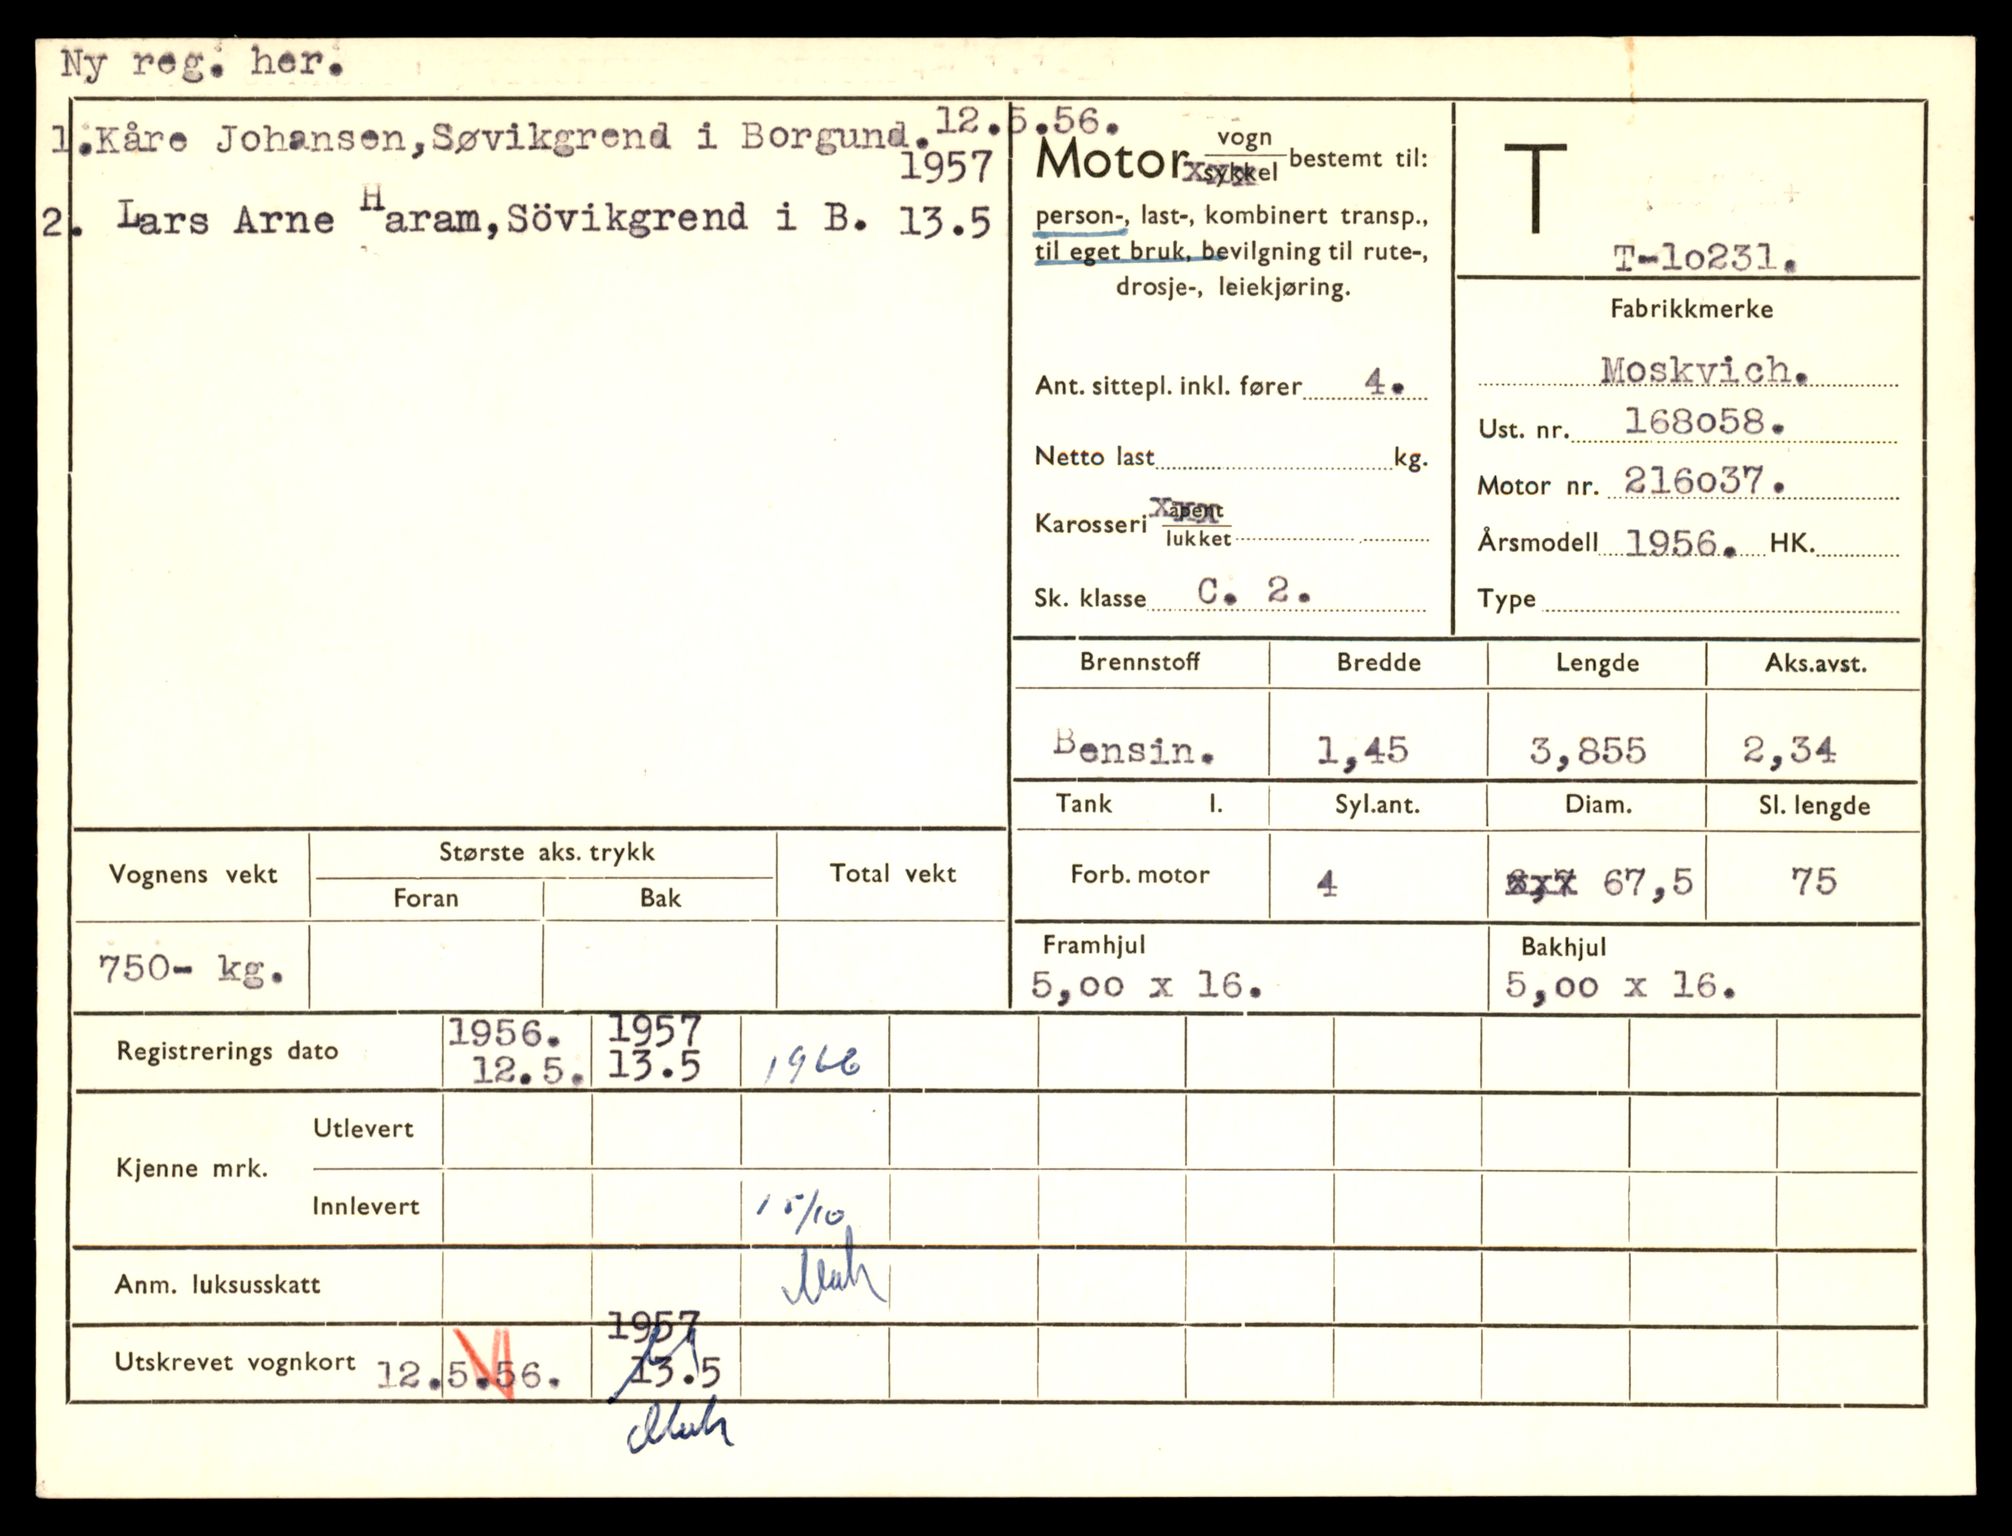 Ny reg. her.
1.Kåre Johansen,Søvikgrend i Borgund.12.5.56.
1957
2. Lars Arne Haram,Sövikgrend i B. 13.5
Motor vogn
sykkel bestemt til:
person-, last-, kombinert transp.,
til eget bruk, bevilgning til rute-,
drosje-, leiekjøring.
Ant. sittepl. inkl. fører 4.
Netto last kg.
Karosseri åpent
lukket
Sk. klasse C. 2.
T
T-1o231.
Fabrikkmerke
Moskvich.
Ust. nr. 168o58.
Motor nr. 216o37.
Årsmodell 1956. HK.
Type
Brennstoff Bredde Lengde Aks.avst.
Bensin. 1,45 3,855 2,34
Tank l. Syl.ant. Diam. Sl. lengde
Forb. motor 4 67,5 75
Framhjul Bakhjul
5,oo x 16. 5,oo x 16.
Vognens vekt Største aks. trykk Total vekt
Foran Bak
750- kg.
Registrerings dato 1956. 1957
12.5. 13.5
Kjenne mrk. Utlevert
Innlevert 15/10
Anm. luksusskatt
1957
Utskrevet vognkort 12.5.56. 13.5